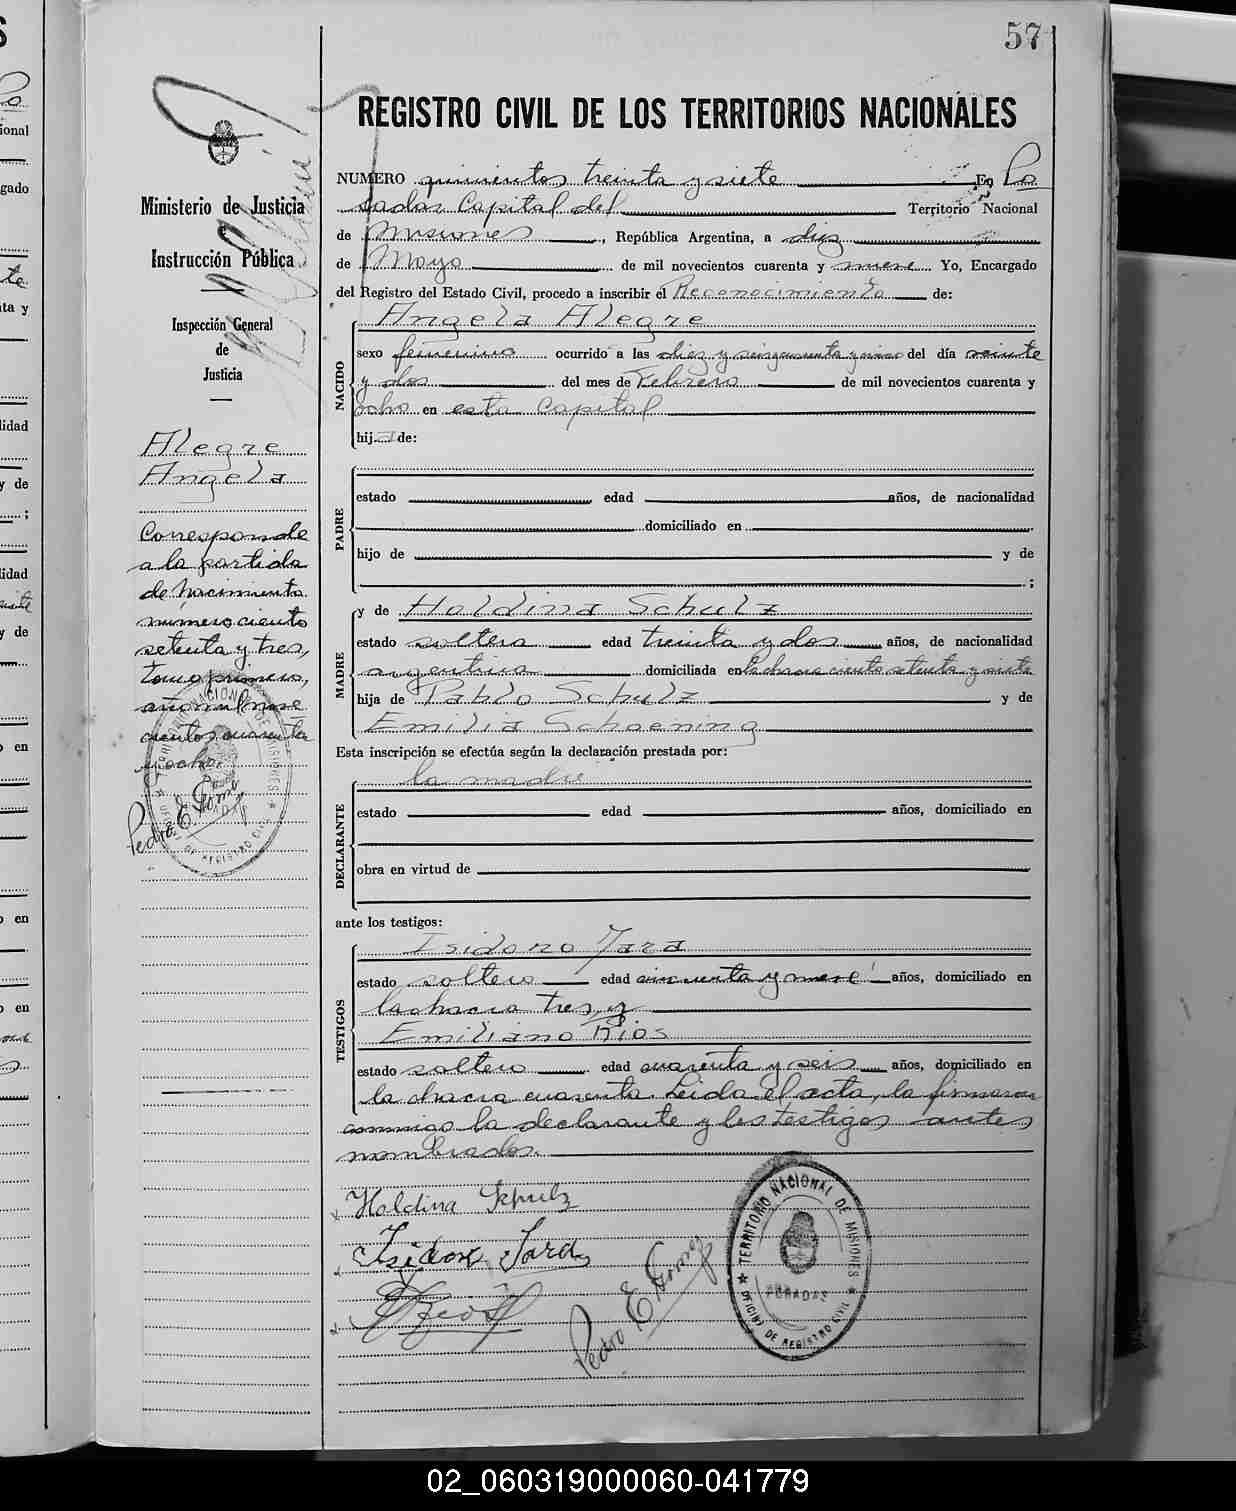 57
REGISTRO CIVIL DE LOS TERRITORIOS NACIONALES
Ministerio de Justicia
e
Instrucción Pública
Inspección General
de
Justicia
Alegre
Angela
Corresponde
a la partida
de nacimiento
número ciento
setenta y tres,
tomo primero,
año mil nove
cientos cuarenta
y ocho.
Pedro E. Gomez
NUMERO quinientos treinta y siete En Po
sadas Capital del Territorio Nacional
de Misiones, República Argentina, a diez
de Mayo de mil novecientos cuarenta y nueve Yo, Encargado
del Registro del Estado Civil, procedo a inscribir el Reconocimiento de:
NACIDO
Angela Alegre
sexo femenino ocurrido a las diez y del día veinte
y dos del mes de Febrero de mil novecientos cuarenta y
ocho en esta Capital
hija de:
PADRE
estado edad años, de nacionalidad
domiciliado en
hijo de y de
;
MADRE
y de Holdina Schulz
estado soltera edad treinta y dos años, de nacionalidad
argentina domiciliada en la chacra ciento setenta y siete
hija de Pablo Schulz y de
Emilia Schoening
Esta inscripción se efectúa según la declaración prestada por:
DECLARANTE
la madre
estado edad años, domiciliado en
obra en virtud de
ante los testigos:
TESTIGOS
Isidoro Jara
estado soltero edad cincuenta y nueve años, domiciliado en
la chacra tres, y
Emiliano Rios
estado soltero edad cuarenta y seis años, domiciliado en
la chacra cuarenta. Leida el acta, la firmaron
conmigo la declarante y los testigos antes
nombrados.
Holdina Schulz
Isidoro Jara
Pedro E. Gomez
TERRITORIO NACIONAL DE MISIONES
POSADAS
OFICINA DE REGISTRO CIVIL
02_060319000060-041779